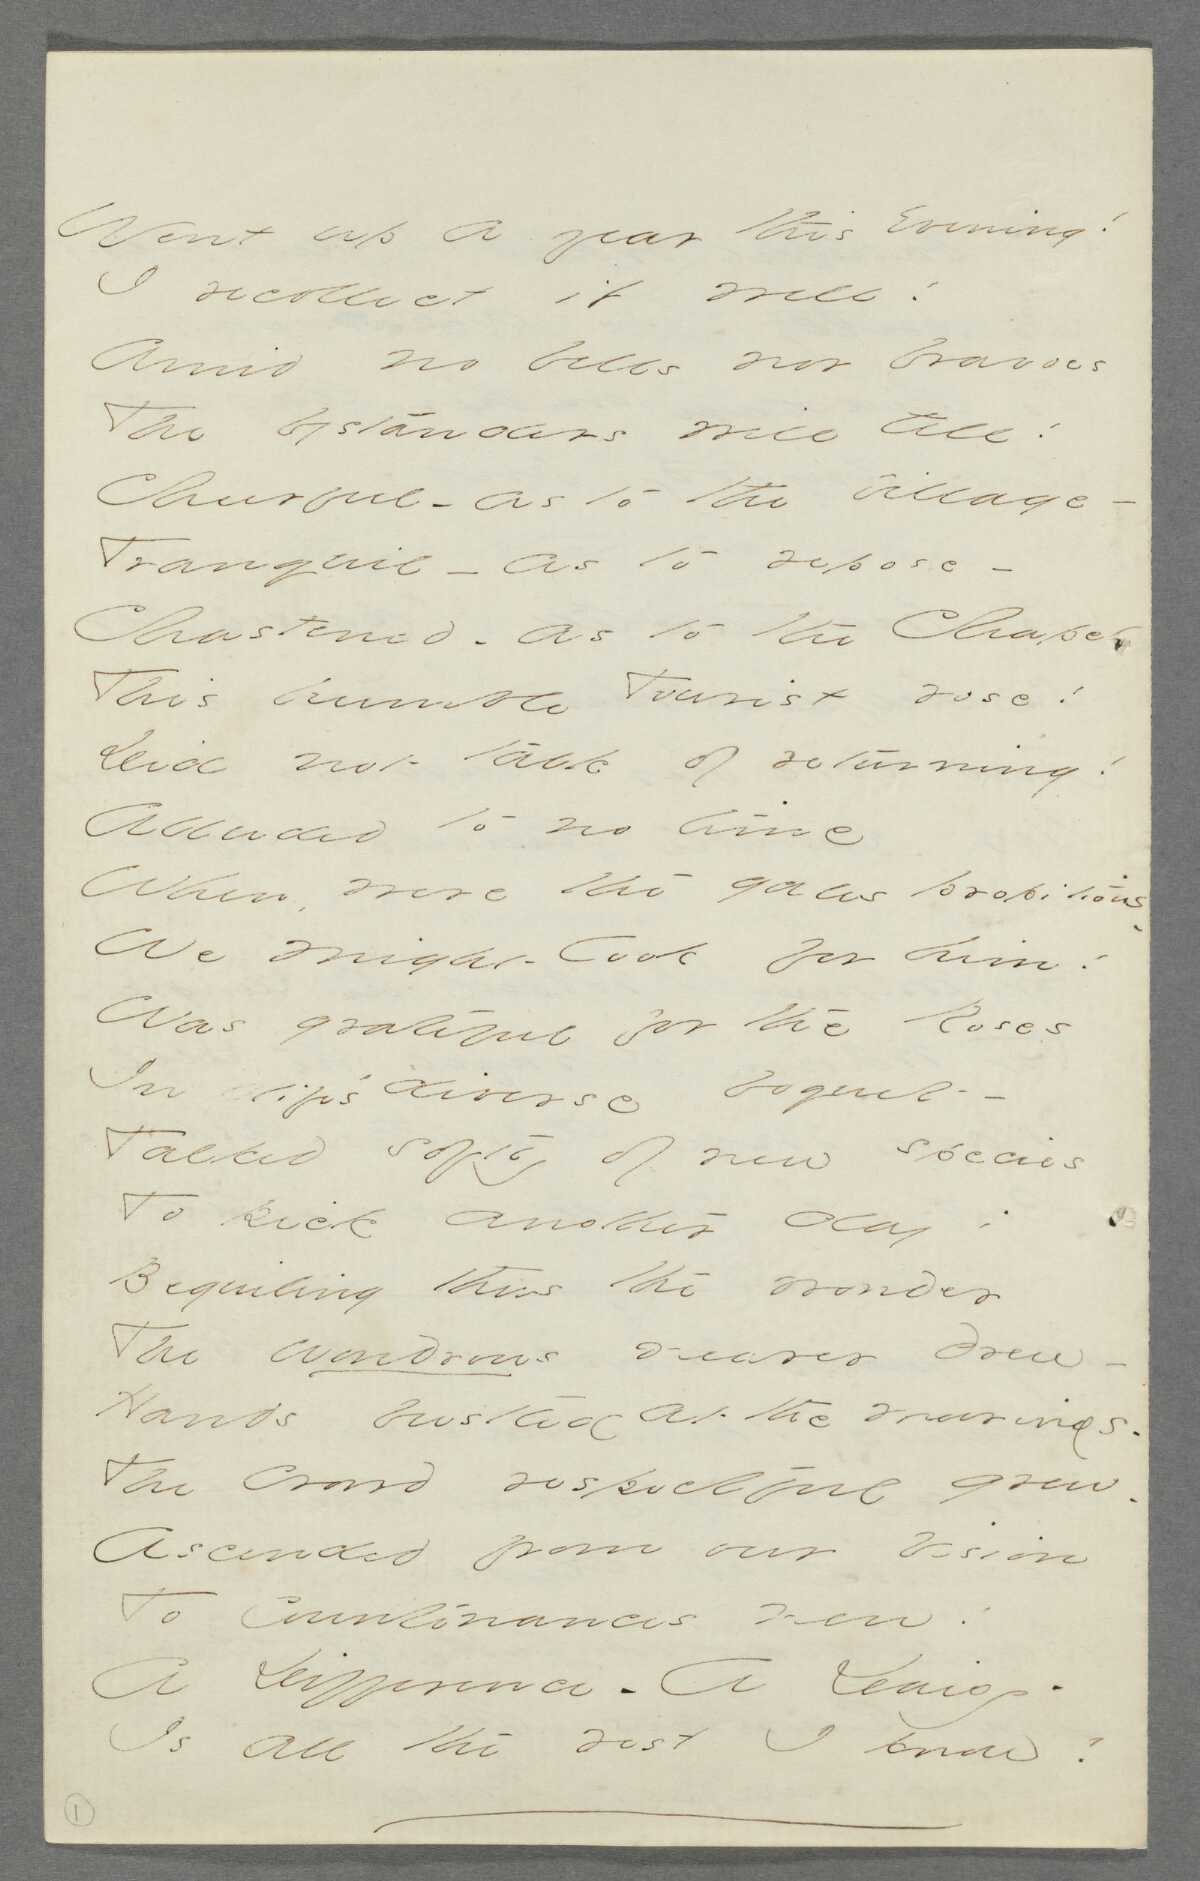 Went up a year this Evening!
I recollect it well!
Amid no bells nor bravoes
The bystanders will tell!
Cheerful - as to the village -
Tranquil - as to repose -
Chastened - as to the Chapel
This humble Tourist rose!
Did not talk of returning!
Alluded to no time
When, were the gales propitious,
We might look for him!
Was grateful for the Roses
In life's diverse boquet -
Talked softly of new species
To pick another day;
Beguiling thus the wonder
The wondrous nearer drew -
Hands bustled at the moorings -
The Crowd respectful grew -
Ascended from our vision
To Countenances new!
A Difference - A Daisy -
Is all the rest I knew!
1